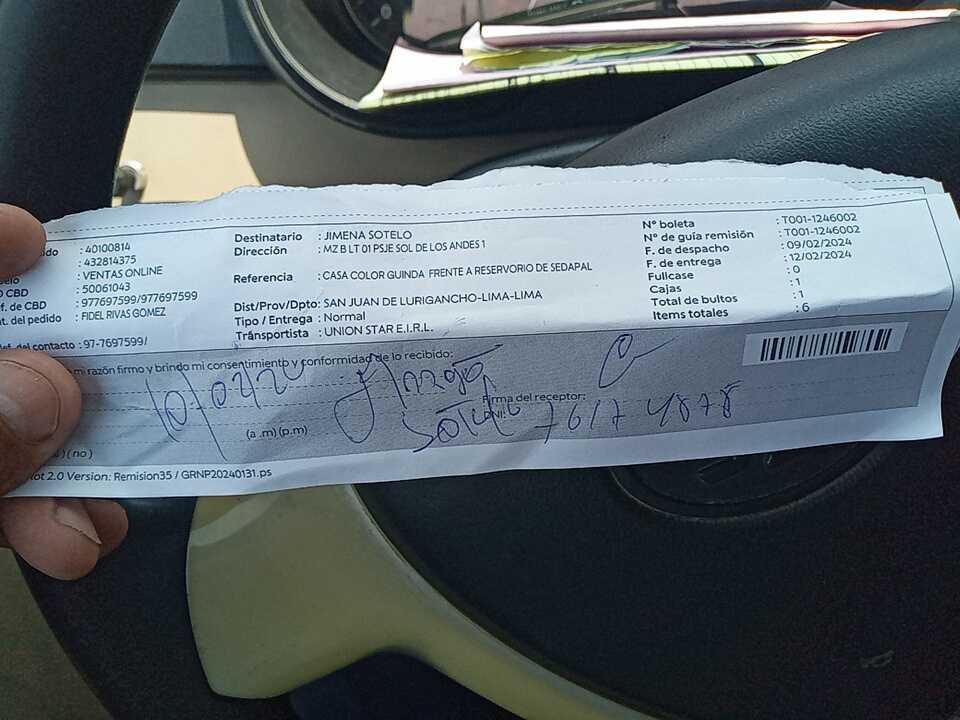 ido : 40100814
: 432814375
elo : VENTAS ONLINE
O CBD : 50061043
f. de CBD : 977697599/977697599
nt. del pedido : FIDEL RIVAS GOMEZ
lef. del contacto : 97-7697599/
Destinatario : JIMENA SOTELO
Dirección : MZ B LT 01 PSJE SOL DE LOS ANDES 1
Referencia : CASA COLOR GUINDA FRENTE A RESERVORIO DE SEDAPAL
Dist/Prov/Dpto: SAN JUAN DE LURIGANCHO-LIMA-LIMA
Tipo / Entrega : Normal
Transportista : UNION STAR E.I.R.L.
N° boleta : T001-1246002
N° de guía remisión : T001-1246002
F. de despacho : 09/02/2024
F. de entrega : 12/02/2024
Fullcase : 0
Cajas : 1
Total de bultos : 1
Items totales : 6
mi razón firmo y brindo mi consentimiento y conformidad de lo recibido:
Firma del receptor:
DNI: 76174878
(a .m) (p.m)
) ( no )
lot 2.0 Version: Remision35 / GRNP20240131.ps